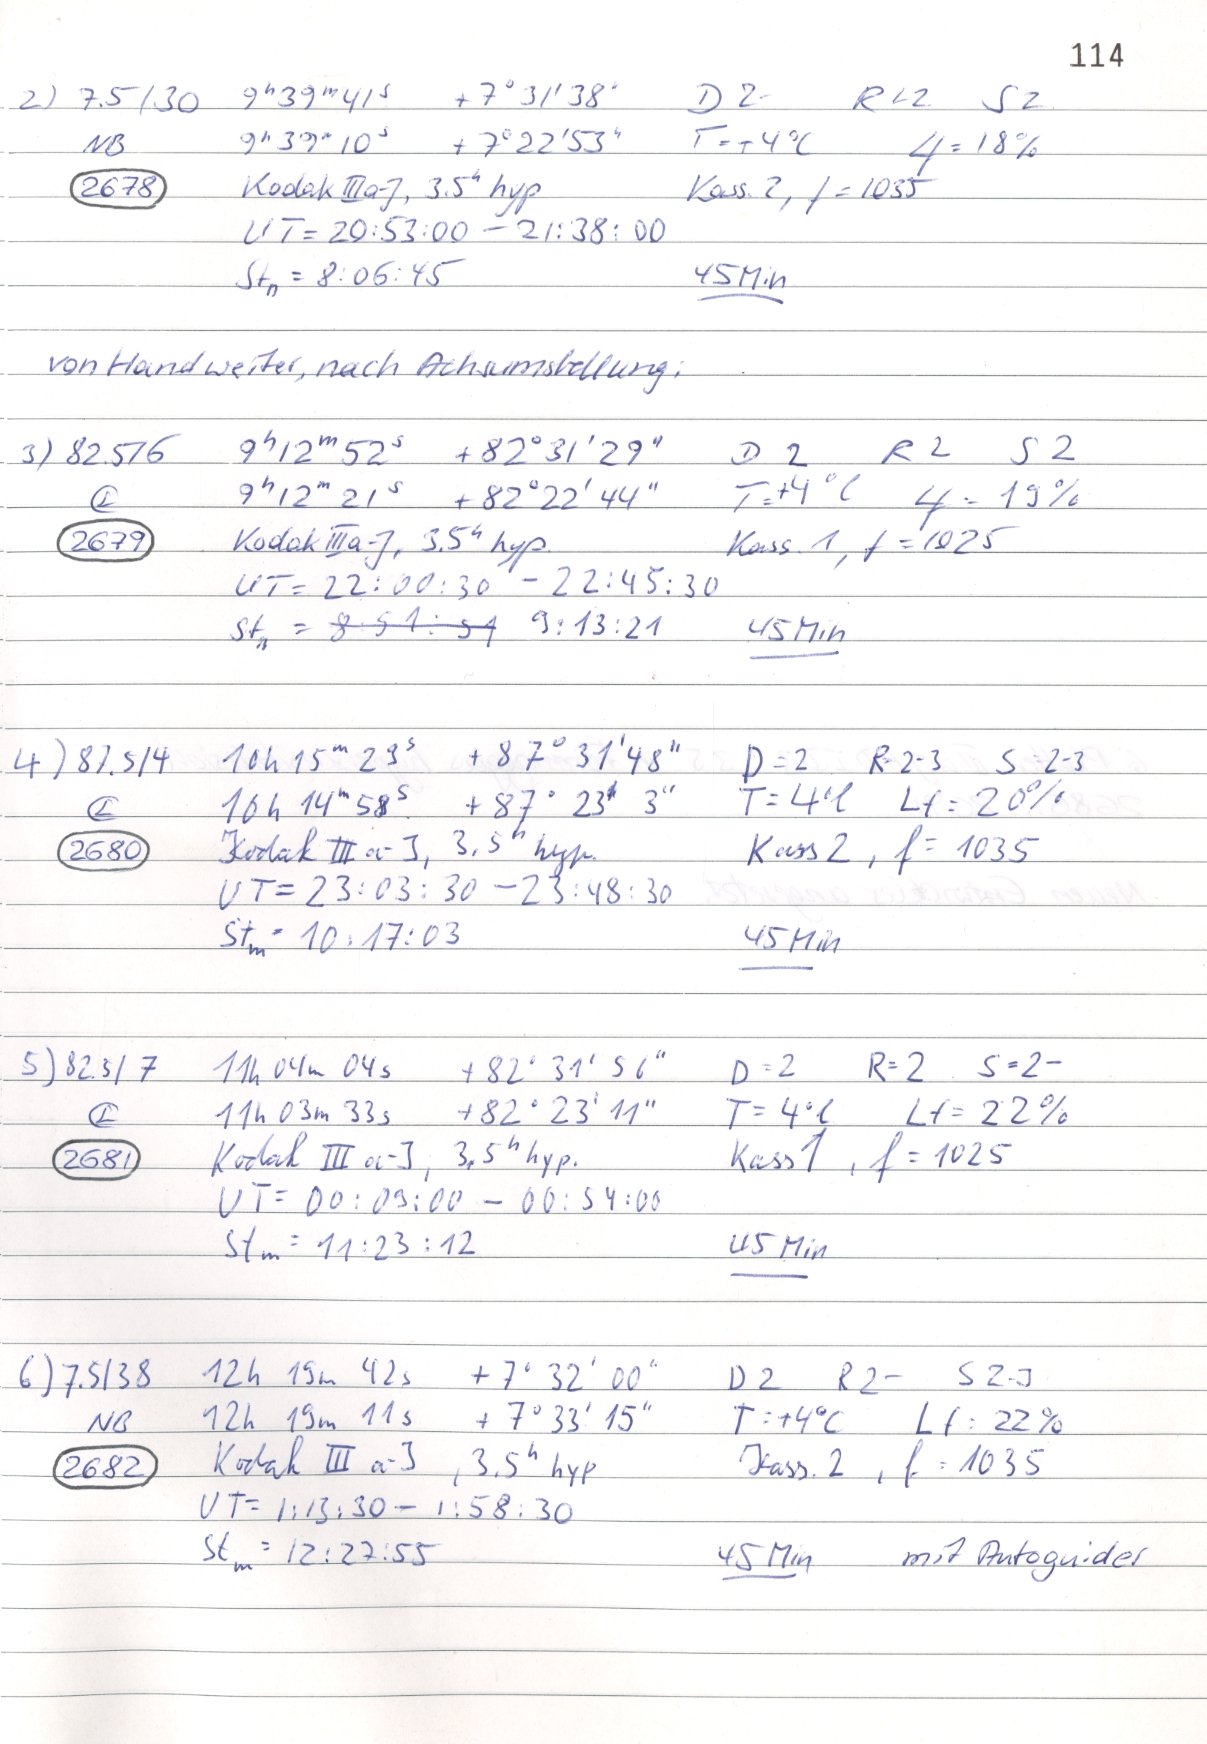 114
2) 7.5/30 9h39m41s +7°31'38" D 2- R<2 S 2
NB 9h39m10s +7°22'53" T=+4°C Lf=18%
2678 Kodak IIIa-J, 3.5h hyp Kass. 2, f=1035
UT=20:53:00 – 21:38:00
Stm = 8:06:45 45 Min
von Hand weiter, nach Achsumstellung:
3) 82.5/6 9h12m52s +82°31'29" D 2 R 2 S 2
9h12m21s +82°22'44" T=+4°C Lf=19%
2679 Kodak IIIa-J, 3.5h hyp. Kass. 1, f=1025
UT=22:00:30 – 22:45:30
Stm = 8:51:51 9:13:21 45 Min
4) 87.5/4 10h 15m 29s +87°31'48" D=2 R=2-3 S=2-3
10h 14m 58s +87°23' 3" T=4°C Lf=20%
2680 Kodak III a-J, 3.5h hyp. Kass 2, f=1035
UT=23:03:30 – 23:48:30
Stm= 10:17:03 45 Min
5) 82.5/7 11h 04m 04s +82°31'56" D=2 R=2 S=2-
11h 03m 33s +82°23'11" T=4°C Lf=22%
2681 Kodak III a-J, 3.5h hyp. Kass 1, f=1025
UT= 00:09:00 – 00:54:00
Stm= 11:23:12 45 Min
6) 7.5/38 12h 19m 42s +7°32'00" D 2 R 2- S 2-3
NB 12h 19m 11s +7°33'15" T=+4°C Lf: 22%
2682 Kodak III a-J, 3.5h hyp Kass. 2, f=1035
UT=1:13:30 – 1:58:30
Stm= 12:27:55 45 Min mit Autoguider